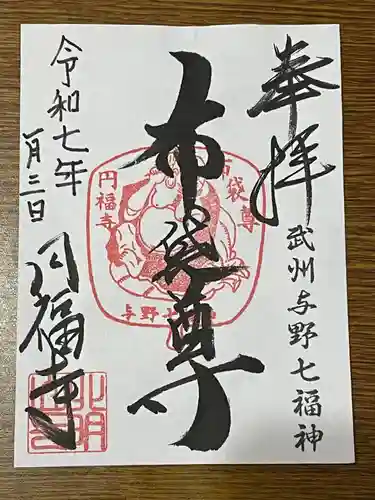 奉拝
武州与野七福神
布袋尊
布袋尊
円福寺
与野七
令和七年
一月三日
円福寺